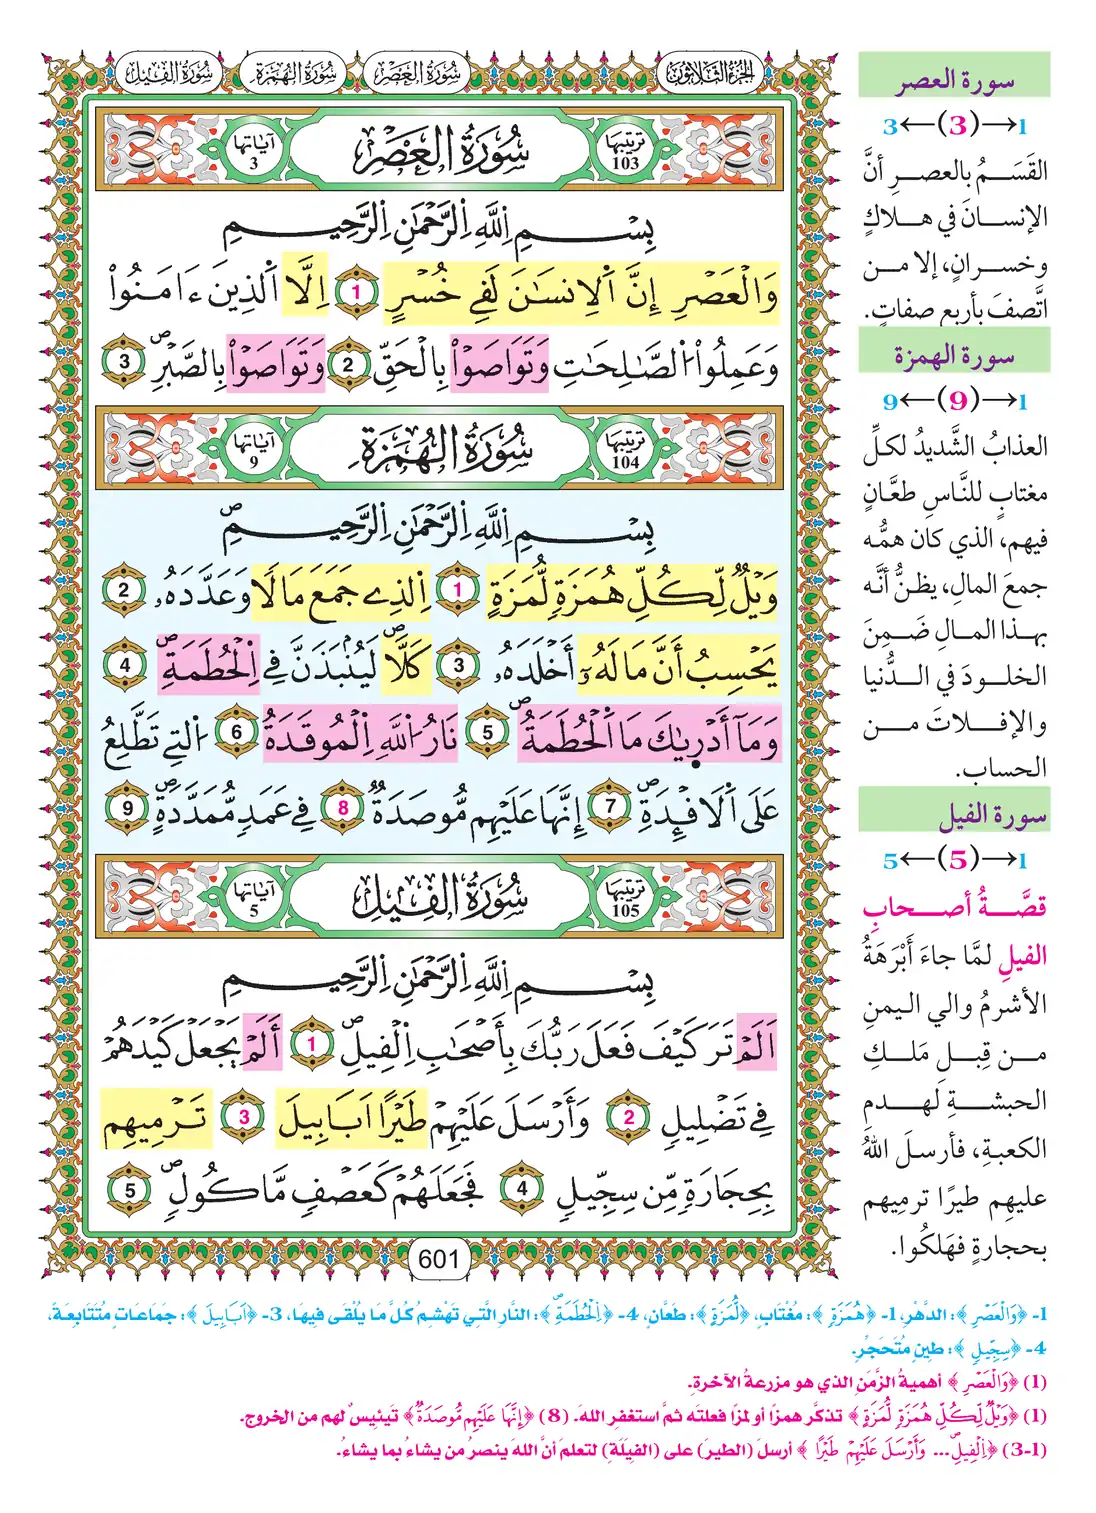 الجزء الثلاثون
سورة العصر
سورة الهمزة
سورة الفيل
ترتيبها 103
سُورَةُ الْعَصْرِ
آياتها 3
بِسْمِ اِ۬للَّهِ اِ۬لرَّحْمَٰنِ اِ۬لرَّحِيمِ
وَالْعَصْرِ إِنَّ اَ۬لِانسَٰنَ لَفِے خُسْرٍ 1 اِلَّا اَ۬لذِينَ ءَامَنُواْ
وَعَمِلُواْ اُ۬لصَّٰلِحَٰتِ وَتَوَاصَوْاْ بِالْحَقِّ 2 وَتَوَاصَوْاْ بِالصَّبْرِۖ 3
ترتيبها 104
سُورَةُ الْهُمَزَةِ
آياتها 9
بِسْمِ اِ۬للَّهِ اِ۬لرَّحْمَٰنِ اِ۬لرَّحِيمِۖ
وَيْلٌ لِّكُلِّ هُمَزَةٍ لُّمَزَةٍ 1 اِ۬لذِے جَمَعَ مَالًا وَعَدَّدَهُۥ 2
يَحْسِبُ أَنَّ مَالَهُۥٓ أَخْلَدَهُۥ 3 كَلَّاۖ لَيُنۢبَذَنَّ فِے اِ۬لْحُطَمَةِۖ 4
وَمَآ أَدْر۪يٰكَ مَا اَ۬لْحُطَمَةُۖ 5 نَارُ اُ۬للَّهِ اِ۬لْمُوقَدَةُ 6 اُ۬لتِے تَطَّلِعُ
عَلَى اَ۬لَافْـِٕدَةِۖ 7 إِنَّهَا عَلَيْهِم مُّوصَدَةٌ 8 فِے عَمَدٍ مُّمَدَّدَةٍۖ 9
ترتيبها 105
سُورَةُ الْفِيلِ
آياتها 5
بِسْمِ اِ۬للَّهِ اِ۬لرَّحْمَٰنِ اِ۬لرَّحِيمِ
أَلَمْ تَرَ كَيْفَ فَعَلَ رَبُّكَ بِأَصْحَٰبِ اِ۬لْفِيلِۖ 1 أَلَمْ يَجْعَلْ كَيْدَهُمْ
فِے تَضْلِيلٍ 2 وَأَرْسَلَ عَلَيْهِمْ طَيْرًا اَبَابِيلَ 3 تَرْمِيهِم
بِحِجَارَةٍ مِّن سِجِّيلٍ 4 فَجَعَلَهُمْ كَعَصْفٍ مَّاكُولٍۖ 5
601
سورة العصر
1→(3)←3
القَسَمُ بالعصرِ أنَّ
الإنسانَ في هلاكٍ
وخسرانٍ، إلا من
اتَّصفَ بأربع صفاتٍ.
سورة الهمزة
1→(9)←9
العذابُ الشَّديدُ لكلِّ
مغتابٍ للنَّاسِ طعَّانٍ
فيهم، الذي كان همُّه
جمعَ المالِ، يظنُّ أنَّه
بهذا المالِ ضَمِنَ
الخلودَ في الدُّنيا
والإفلاتَ من
الحساب.
سورة الفيل
1→(5)←5
قصَّةُ أصحابِ
الفيلِ لمَّا جاءَ أَبْرَهَةُ
الأشرمُ والي اليمنِ
من قِبلِ مَلكِ
الحبشةِ لهدمِ
الكعبةِ، فأرسلَ اللهُ
عليهِم طيرًا ترميهم
بحجارةٍ فهَلكُوا.
1- ﴿وَالْعَصْرِ﴾: الدَّهْرِ، 1- ﴿هُمَزَةٍ﴾: مُغْتَابٍ، ﴿لُّمَزَةٍ﴾: طعَّانٍ، 4- ﴿اِ۬لْحُطَمَةِۖ﴾: النَّارِ الَّتِي تَهْشِمُ كُلَّ مَا يُلْقَى فِيهَا، 3- ﴿اَبَابِيلَ﴾: جَمَاعَاتٍ مُتَتَابِعَةً،
4- ﴿سِجِّيلٍ﴾: طِينٍ مُتَحَجِّرٍ.
(1) ﴿وَالْعَصْرِ﴾ أهميةُ الزَّمَنِ الذي هو مزرعةُ الآخرةِ.
(1) ﴿وَيْلٌ لِّكُلِّ هُمَزَةٍ لُّمَزَةٍ﴾ تذكَّر همزًا أو لمزًا فعلتَه ثمَّ استغفرِ اللهَ. (8) ﴿إِنَّهَا عَلَيْهِم مُّوصَدَةٌ﴾ تَيئيسٌ لهم من الخروجِ.
(1-3) ﴿اِ۬لْفِيلِۖ ... وَأَرْسَلَ عَلَيْهِمْ طَيْرًا﴾ أرسلَ (الطيرَ) على (الفِيَلَةِ) لتعلمَ أنَّ اللهَ ينصرُ من يشاءُ بما يشاءُ.